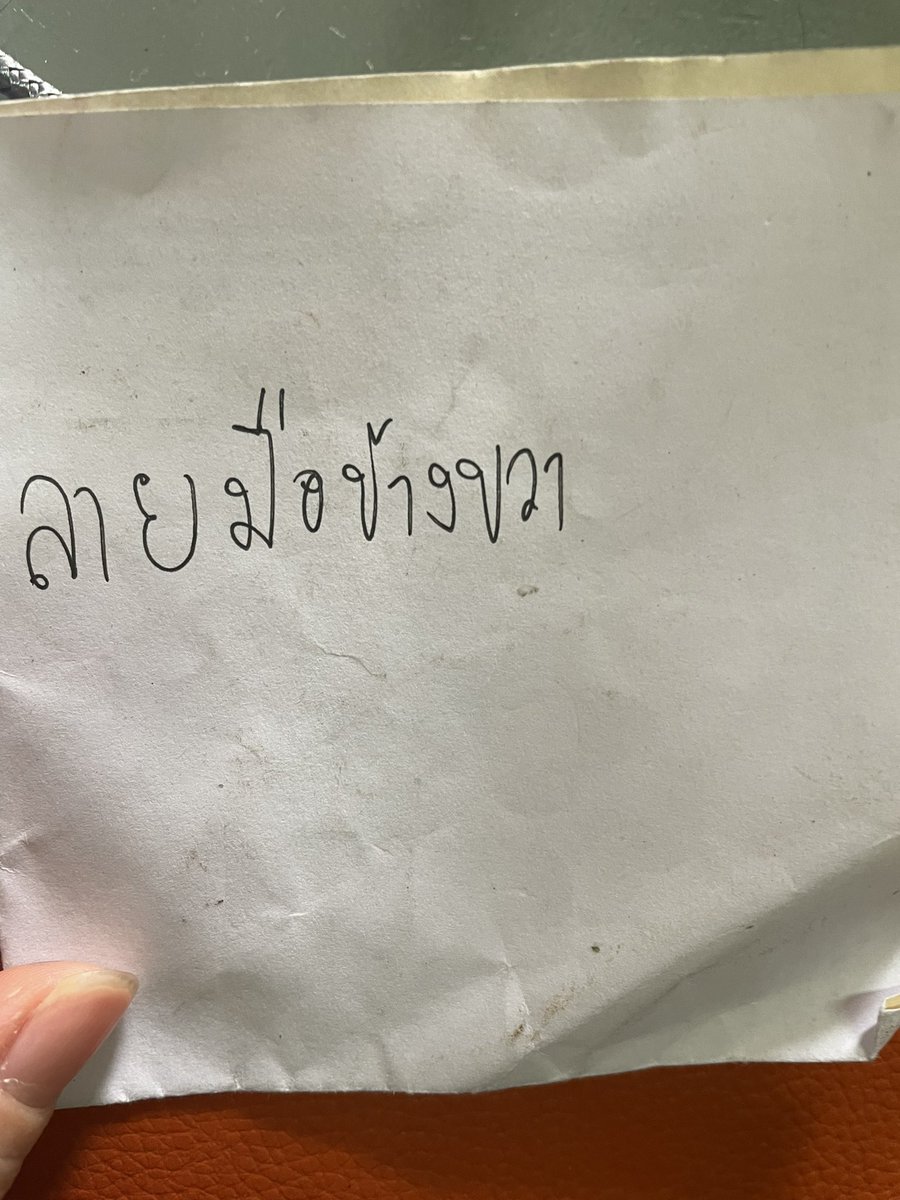 ลายมือข้างขวา